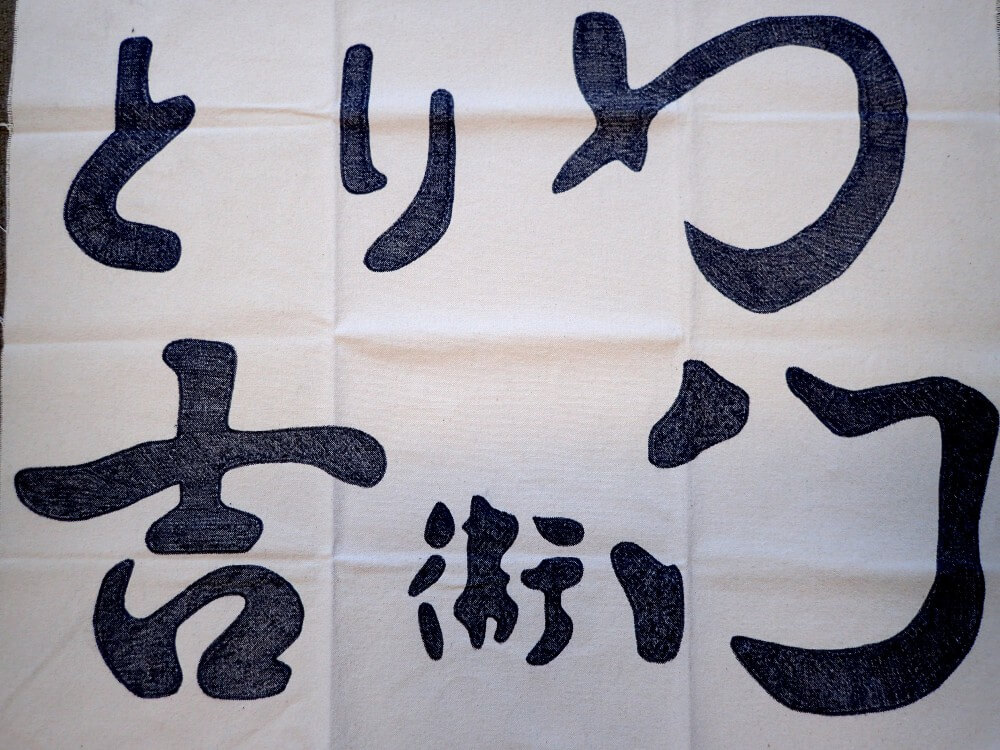 とりわ
吉衛門